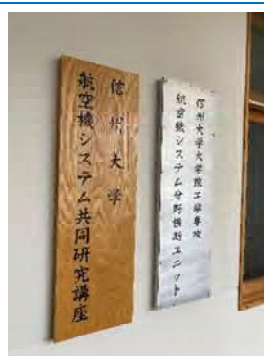 信州大学
航空機システム共同研究講座
信州大学大学院工学専攻
航空機システム分野横断ユニット